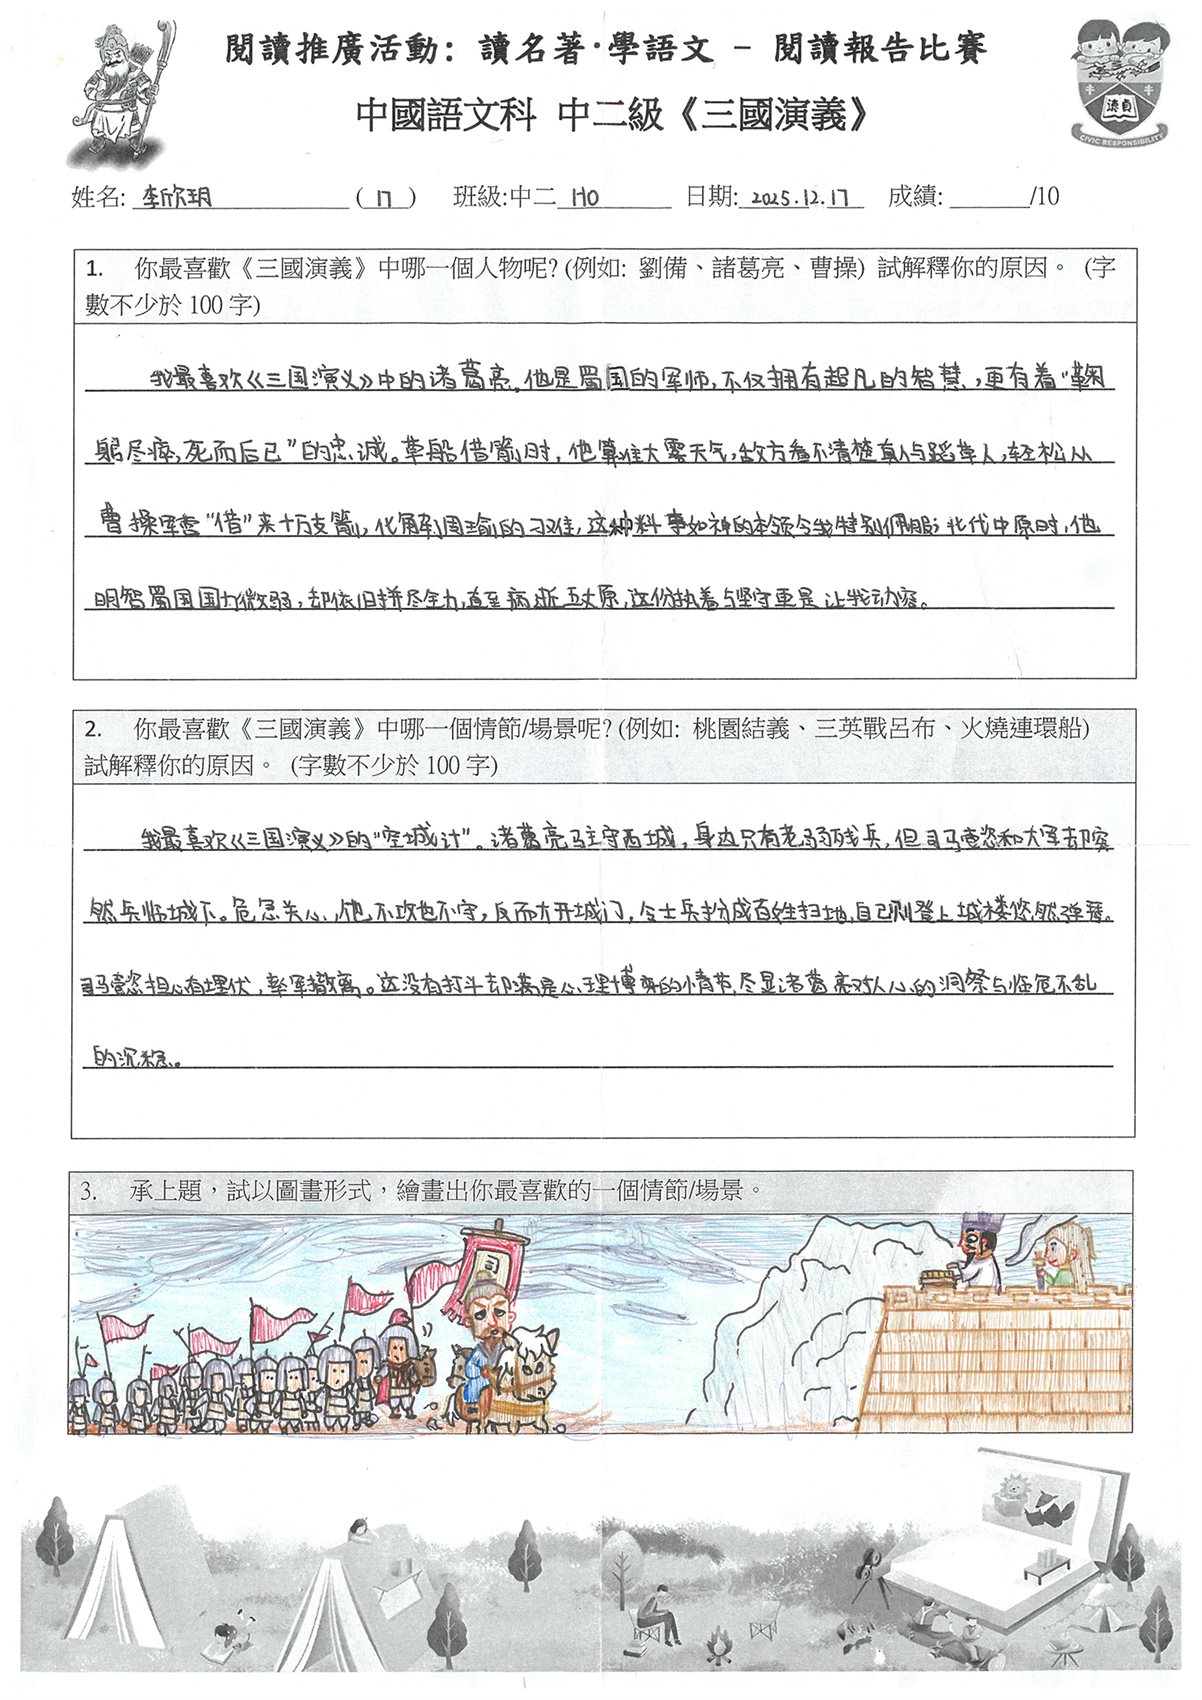 閱讀推廣活動: 讀名著·學語文 – 閱讀報告比賽
中國語文科 中二級《三國演義》
CIVIC RESPONSIBILITY
姓名: 李欣玥 (17) 班級:中二 HO 日期: 2025.12.17 成績: /10
1. 你最喜歡《三國演義》中哪一個人物呢? (例如: 劉備、諸葛亮、曹操) 試解釋你的原因。 (字
數不少於 100 字)
我最喜欢《三国演义》中的诸葛亮。他是蜀国的军师,不仅拥有超凡的智慧,更有着“鞠
躬尽瘁,死而后已”的忠诚。草船借箭时,他算准大雾天气,敌方看不清楚真人与稻草人,轻松从
曹操军营“借”来十万支箭,化解周瑜的刁难,这种料事如神的本领令我特别佩服;北伐中原时,他
明智蜀国国力微弱,却依旧拼尽全力,直至病逝五丈原,这份执着与坚守更是让我动容。
2. 你最喜歡《三國演義》中哪一個情節/場景呢? (例如: 桃園結義、三英戰呂布、火燒連環船)
試解釋你的原因。 (字數不少於 100 字)
我最喜欢《三国演义》的“空城计”。诸葛亮驻守西城,身边只有老弱残兵,但司马懿和大军却突
然兵临城下。危急关心,他不攻也不守,反而大开城门,令士兵扮成百姓扫地,自己则登上城楼悠然弹琴。
司马懿担心有埋伏,率军撤离。这没有打斗却满是心理博弈的情节,尽显诸葛亮对人心的洞察与临危不乱
的沉稳。
3. 承上題,試以圖畫形式,繪畫出你最喜歡的一個情節/場景。
司